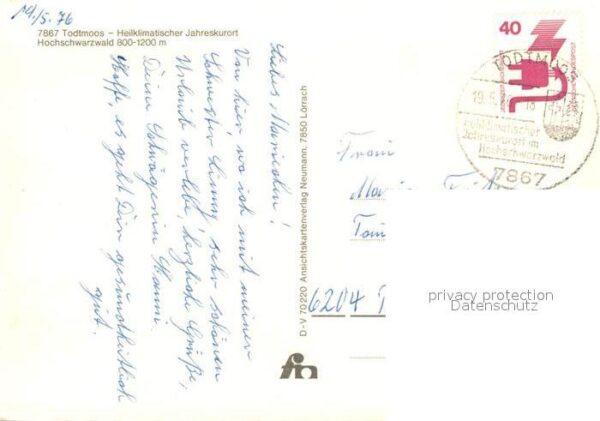 19/5. 76
7867 Todtmoos – Heilklimatischer Jahreskurort
Hochschwarzwald 800-1200 m
Liebes Mariechen!
Von hier, wo ich mit meiner
Schwester schönen
Urlaub verlebe, herzliche Grüße,
Deine Schwägerin Hanni.
Hoffe, es geht Dir gesundheitlich
gut.
D-V 70220 Ansichtskartenverlag Neumann, 7850 Lörrach
fn
40
TODTMOOS
19.5.
Heilklimatischer
Jahreskurort im
Hochschwarzwald
7867
Frau
6204
privacy protection
Datenschutz